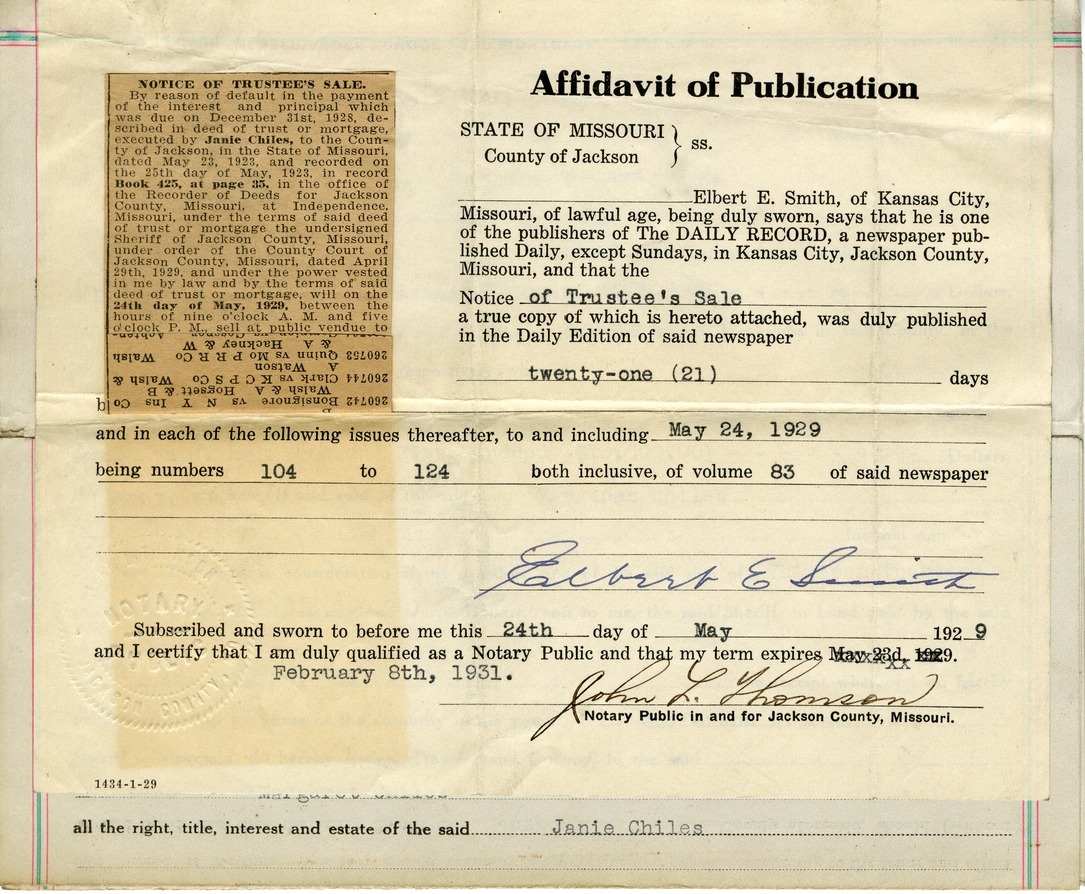 NOTICE OF TRUSTEE'S SALE.
By reason of default in the payment
of the interest and principal which
was due on December 31st, 1928, de-
scribed in deed of trust or mortgage,
executed by Janie Chiles, to the Coun-
ty of Jackson, in the State of Missouri,
dated May 23, 1923, and recorded on
the 25th day of May, 1923, in record
Book 425, at page 35, in the office of
the Recorder of Deeds for Jackson
County, Missouri, at Independence,
Missouri, under the terms of said deed
of trust or mortgage the undersigned
Sheriff of Jackson County, Missouri,
under order of the County Court of
Jackson County, Missouri, dated April
29th, 1929, and under the power vested
in me by law and by the terms of said
deed of trust or mortgage, will on the
24th day of May, 1929, between the
hours of nine o'clock A. M. and five
o'clock P. M., sell at public vendue to
& A Hackney & W
260753 Quinn vs Mo P R R Co Walsh
A Watson
260744 Clark vs K C P S Co Walsh &
Walsh & A Hogsett & B
260742 Bonsignore vs N Y Ins Co
Affidavit of Publication
STATE OF MISSOURI } ss.
County of Jackson
Elbert E. Smith, of Kansas City,
Missouri, of lawful age, being duly sworn, says that he is one
of the publishers of The DAILY RECORD, a newspaper pub-
lished Daily, except Sundays, in Kansas City, Jackson County,
Missouri, and that the
Notice of Trustee's Sale
a true copy of which is hereto attached, was duly published
in the Daily Edition of said newspaper
twenty-one (21) days
b
and in each of the following issues thereafter, to and including May 24, 1929
being numbers 104 to 124 both inclusive, of volume 83 of said newspaper
Elbert E Smith
Subscribed and sworn to before me this 24th day of May 1929
and I certify that I am duly qualified as a Notary Public and that my term expires May 23d, 1929.
February 8th, 1931.
John L. Thomson
Notary Public in and for Jackson County, Missouri.
NOTARY
COUNTY
1434-1-29
Margaret Chiles
all the right, title, interest and estate of the said Janie Chiles